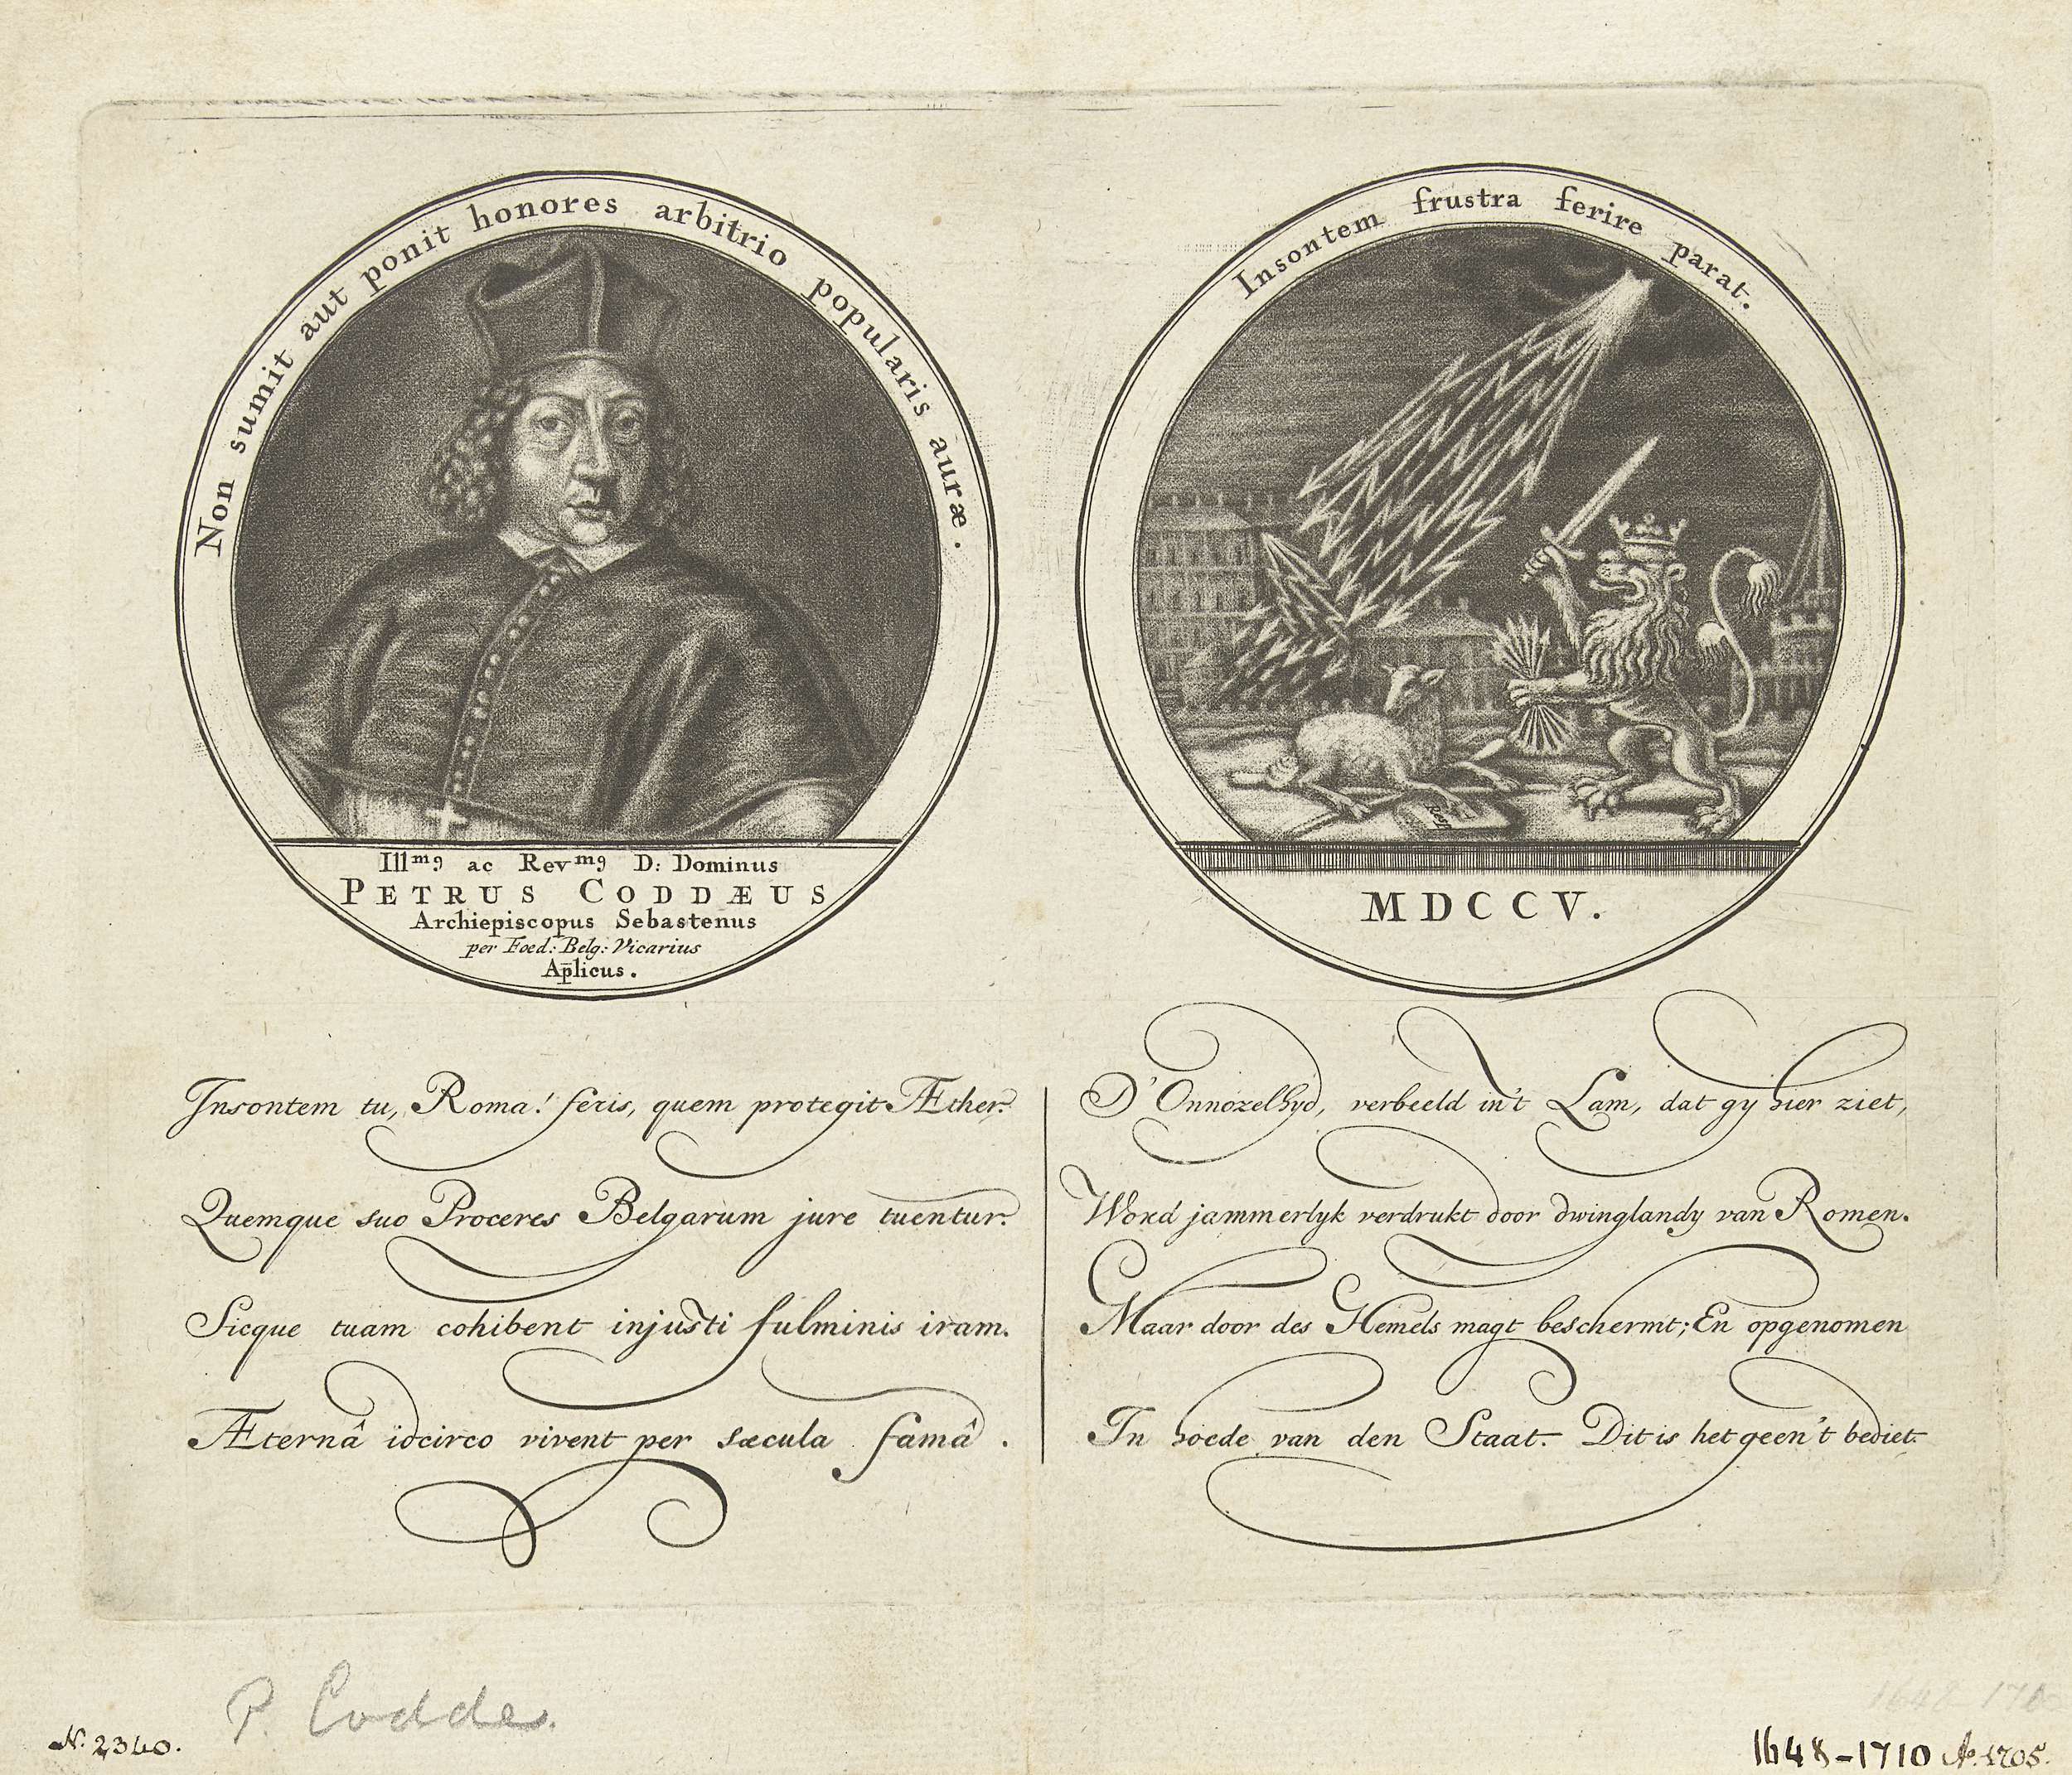 Non sumit aut ponit honores arbitrio popularis auræ.
Illm9 ac Revm9 D: Dominus
PETRUS CODDÆUS
Archiepiscopus Sebastenus
per Foed: Belg: Vicarius
Ap̄licus.
Insontem frustra ferire parat.
MDCCV.
Insontem tu, Roma! feris, quem protegit Æther.
Quemque suo Proceres Belgarum jure tuentur.
Sicque tuam cohibent injusti fulminis iram.
Æternâ idcirco vivent per sæcula famâ.
D'Onnozelhyd, verbeeld in't Lam, dat gy hier ziet,
Word jammerlyk verdrukt door dwinglandy van Romen.
Maar door des Hemels magt beschermt; En opgenomen
In hoede van den Staat. Dit is het geen't bediet.
P. Codde.
N. 2340.
1648-1710 Ao. 1705.